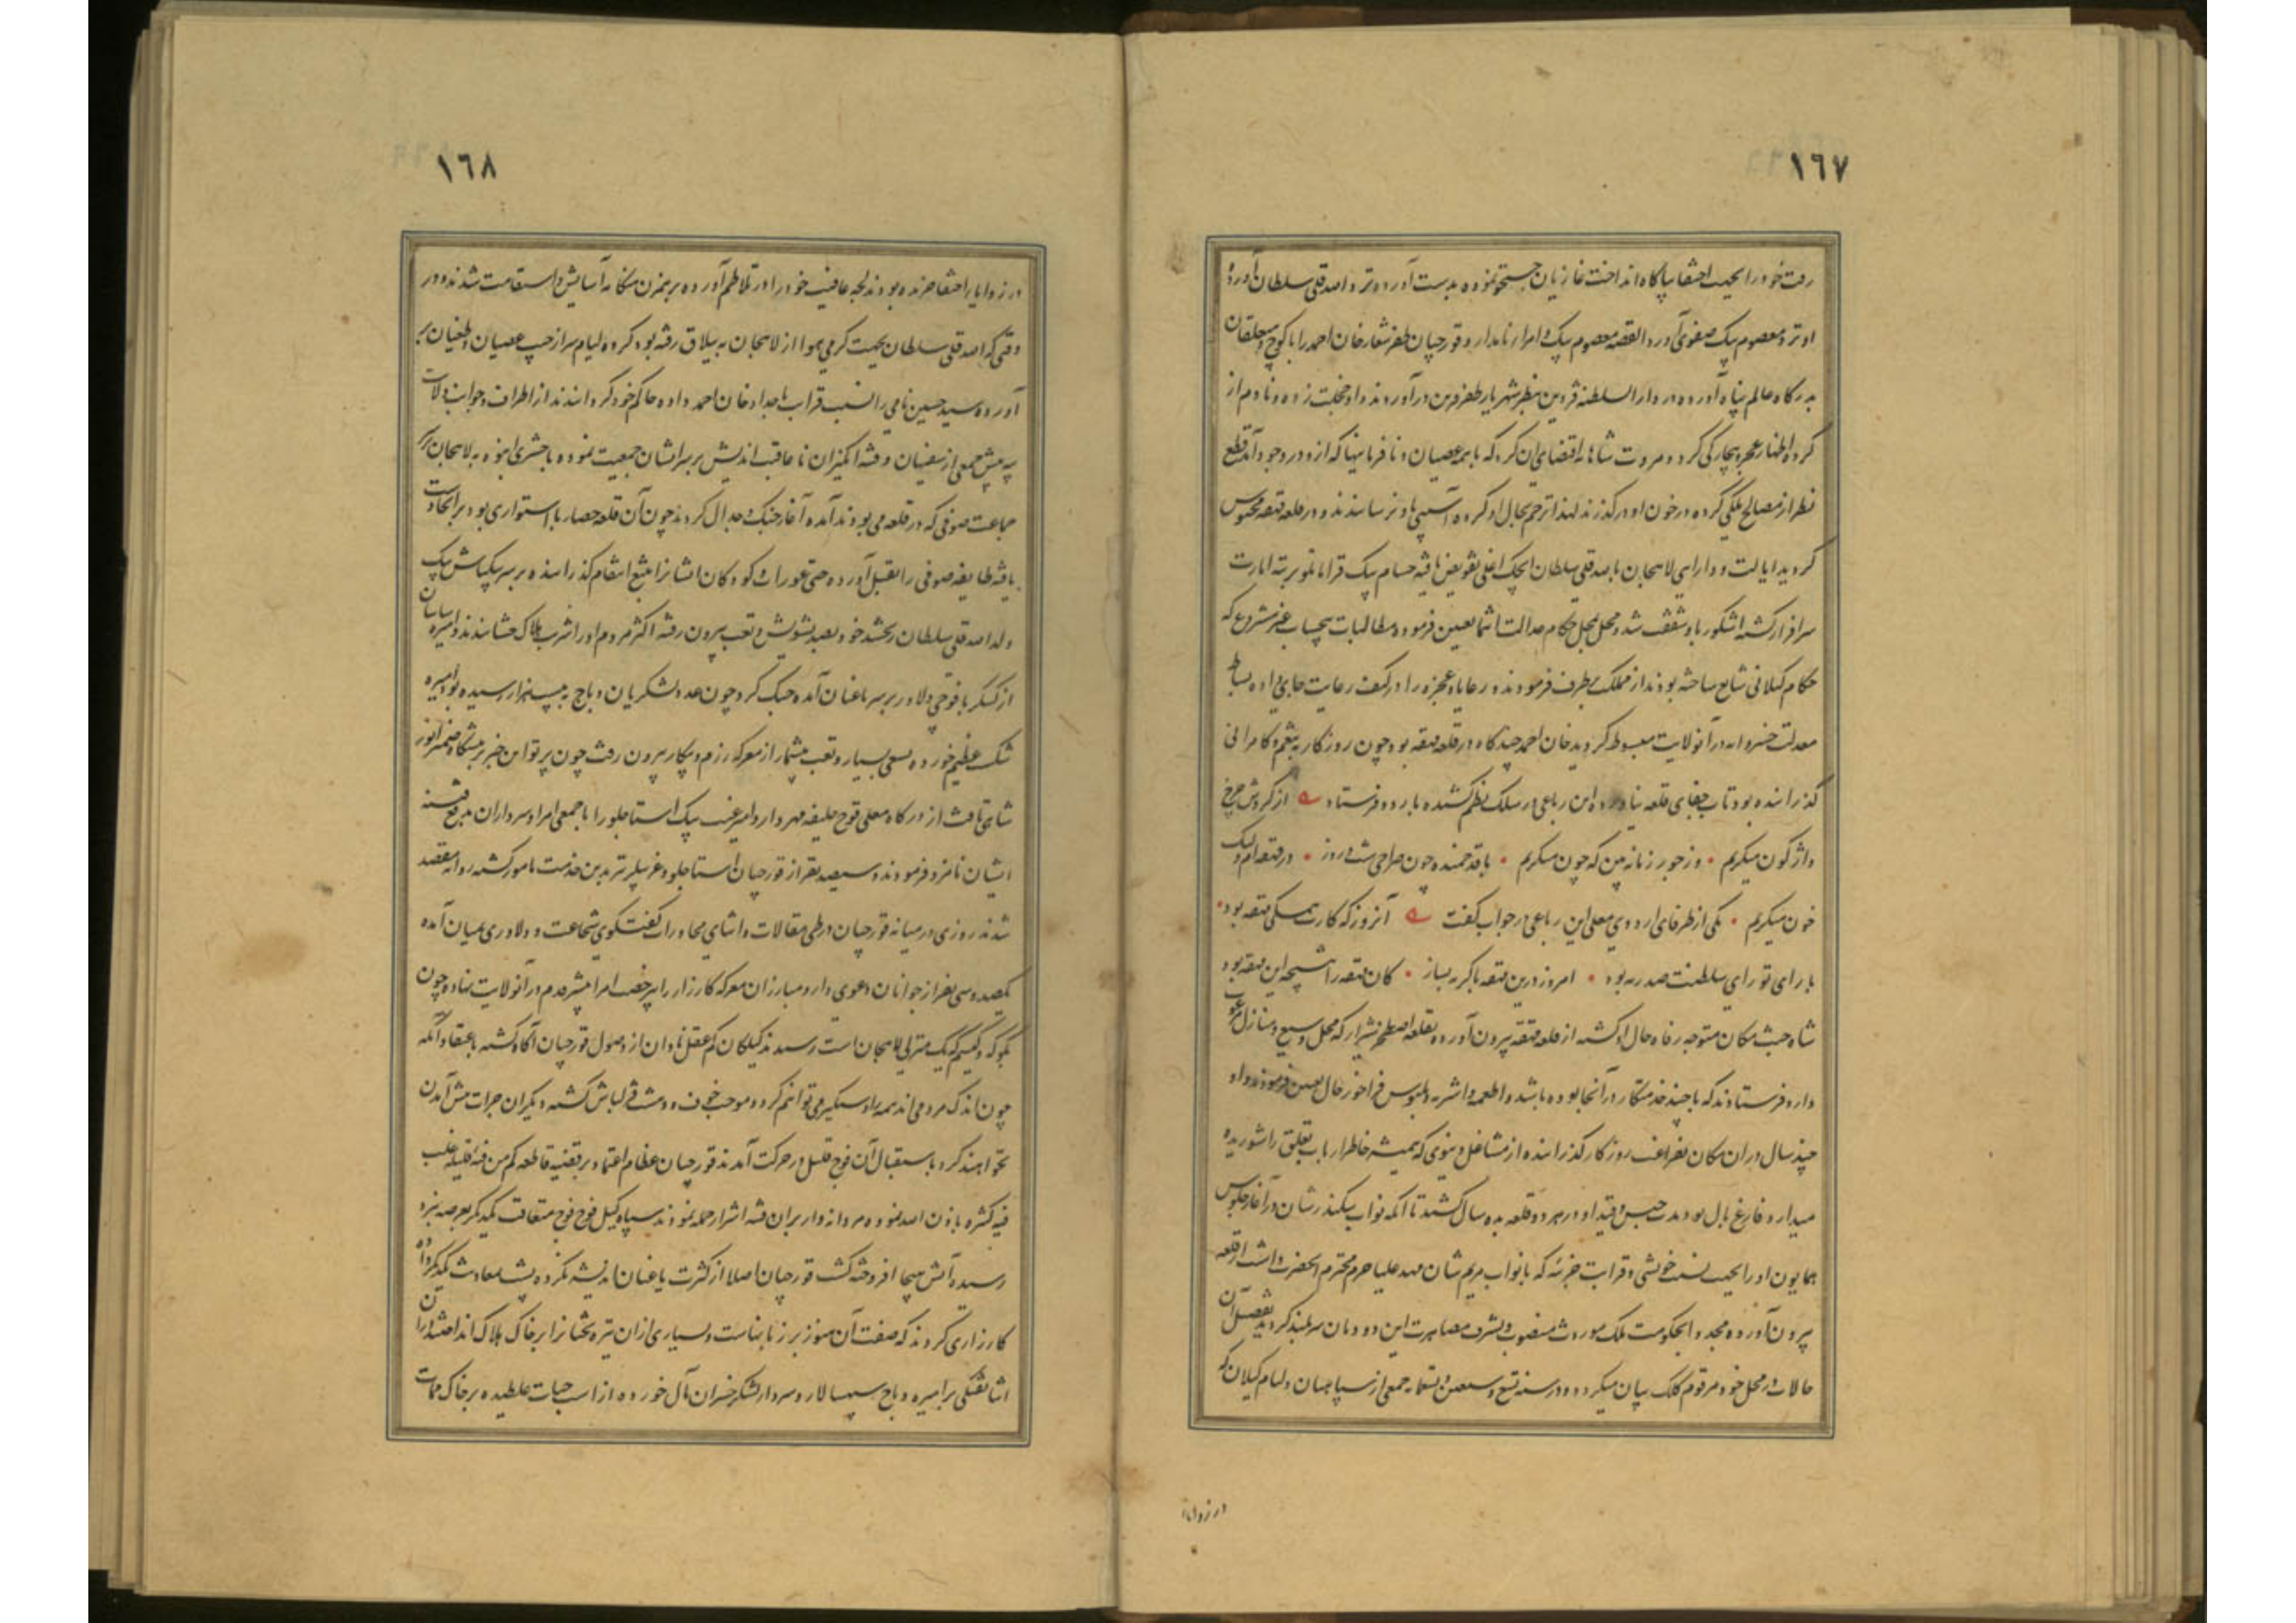 ١٦٧
رخت خود را بجهت اختفا بپاگاه انداخت غازیان جستجو نموده بدست آورده نزد اصدقلی سلطان آورده
او نزد معصوم بیک صفوی آورد القصه معصوم بیک و امراء نامدار و قورچیان ظفر شعار خان احمد را با کوچ و متعلقان
بدرگاه عالم پناه آورده در دار السلطنه قزوین بنظر شهریار ظفر قرین در آوردند و او خجلت زده و نادم از
کرده اظهار عجز و بیچارگی کرد و مروت شاهانه اقتضای آن کرد که با همه عصیان و نافرمانیها که ازو در وجود آمد قطع
نظر از مصالح ملکی کرده در خون او در گذرند لهذا ترحم بحال او کرده آسیبی باو نرسانیدند و در قلعه قهقهه محبوس
گردید ایالت و دارایی لاهجان باصدقلی سلطان ایجک اغلی تفویض یافته حسام بیک قرامانلو برتبه امارت
سرافراز گشته اشکور باو شفقت شد و محل بمحل حکام عدالت انتما تعیین فرمود و مطالبات بیحساب غیر مشروع که
حکام گیلانی شایع ساخته بودند از مملکت برطرف فرمودند و رعایا و عجزه را در کنف رعایت جای داده بساط
معدلت خسروانه در آنولایت مبسوط گردید خان احمد چندگاه در قلعه قهقهه بود چون روزگار به تنعم و کامرانی
گذرانیده بود تاب جفای قلعه نیاورده این رباعی در سلک نظم کشیده باردو فرستاد از گردش چرخ
واژگون میگریم • وز جور زمانه بین که چون میگریم • با قد خمیده چون صراحی شب و روز • در قهقهه ام ولیک
خون میگریم • یکی از ظرفای اردوی معلی این رباعی در جواب گفت آنروز که کارت همگی قهقهه بود •
با رای تو رای سلطنت صد رهه بود • امروز درین قهقهه با گریه بساز • کان قهقهه را نتیجه این قهقهه بود
شاه جنت مکان متوجه رفاه حال او گشته از قلعه قهقهه بیرون آورده بقلعه اصطخر شیراز که محل وسیع و منازل مرغوب
دارد فرستادند که با چند خدمتکار در آنجا بوده باشد و اطعمه و اشربه و ملبوس فراخور حال تعیین فرمودند و او
چند سال در ان مکان بفراغت روزگار گذرانیده از مشاغل دنیوی که همیشه خاطر ارباب تعلق را شوریده
میدارد فارغ بال بود مدت حبس و قید او در هر دو قلعه به ده سال کشید تا آنکه نواب سکندر شان در آغاز جلوس
همایون او را بجهت نسبت خویشی و قرابت جزئیه که با نواب مریم شان مهد علیا حرم محترم آنحضرت داشت از قلعه
بیرون آورده مجددا بحکومت ملک موروث منصوب و بشرف مصاهرت این دودمان سربلند گردید تفصیل آن
حالات در محل خود مرقوم کلک بیان میگردد و در سنه تسع و سبعین و تسعمائه جمعی از سپاهیان و لیام گیلان که
در زوایا
١٦٨
در زوایا با اختفا خزیده بودند لجه عافیت خود را در تلاطم آورده برهمزن هنگامه آسایش و استقامت شدند و در
وقتی که اصدقلی سلطان بجهت گرمی هوا از لاهجان به ییلاق رفته بود گروه لیام سر از جیب عصیان و طغیان بر
آورده سید حسین نامی را نسب قرابت باجداد خان احمد داده حاکم خود گردانیدند از اطراف و جوانب ولایت
بیه پیش جمعی از سفیهان و فتنه انگیزان نا عاقبت اندیش بر سر ایشان جمعیت نموده با حشری انبوه به لاهجان بر سر
جماعت صوفی که در قلعه می بودند آمده آغاز جنگ و جدال کردند چون آن قلعه حصار با استواری بود بر آنجا دست
یافته طایفه صوفی را بقتل آورده حتی عورات و کودکان ایشانرا بتیغ انتقام گذرانیده بر سر یکپاش بیک
ولد اصدقلی سلطان ریختند و او بصد تشویش و تعب بیرون رفته اکثر مردم او را شربت هلاک چشانیدند و امیره ساسان
از کسکر با فوجی دلاور بر سر باغیان آمده جنگ کرد چون عدد لشکریان دباج به بیست هزار رسیده بود امیره
شکست عظیم خورده بسعی بسیار و تعب بیشمار از معرکه رزم و پیکار بیرون رفت چون پرتو این خبر بر پیشگاه ضمیر انور
شاهی تافت از درگاه معلی قوچ خلیفه مهردار و امیر غیب بیک استاجلو را با جمعی امرا و سرداران بدفع فتنه
ایشان نامزد فرمودند و سیصد نفر از قورچیان استاجلو و غربیلر نیز بدین خدمت مامور گشته روانه مقصد
شدند روزی در میانه قورچیان در طی مقالات و اثنای محاورات گفتگوی شجاعت و دلاوری بمیان آمده
یکصد و سی نفر از جوانان دعوی دار و مبارزان معرکه کارزار را بیرخصت امرا پیشتر قدم در آنولایت نهاده چون
بکوکه و کیسم که یک منزلی لاهجان است رسیدند گیلکان کم عقل نادان از وصول قورچیان آگاه گشته باعتقاد آنکه
چون اندک مردمی اند همه را دستگیر می توانیم کرد و موجب خوف و دهشت قزلباش گشته دیگران جرات پیش آمدن
نخواهند کرد باستقبال آن فوج قلیل در حرکت آمدند قورچیان عظام اعتماد بر قضیه قاطعه کم من فئة قلیله غلبت
فئة کثیره باذن الله نموده مردانه وار بران فئه اشرار حمله نمودند سپاه گیل فوج فوج متعاقب یکدیگر بعرصه نبرد
رسیده آتش هیجا افروخته گشت قورچیان اصلا از کثرت یاغیان اندیشه نکرده پشت بمعاونت یکدیگر داده
کارزاری کردند که صفت آن هنوز بر زبانهاست و بسیاری از ان تیره بختانرا بر خاک هلاک انداختند در آن
اثنا تفنگی بر امیره دباج سپهسالار و سردار لشکر خسران مآل خورده از اسب حیات غلطیده بر خاک ممات